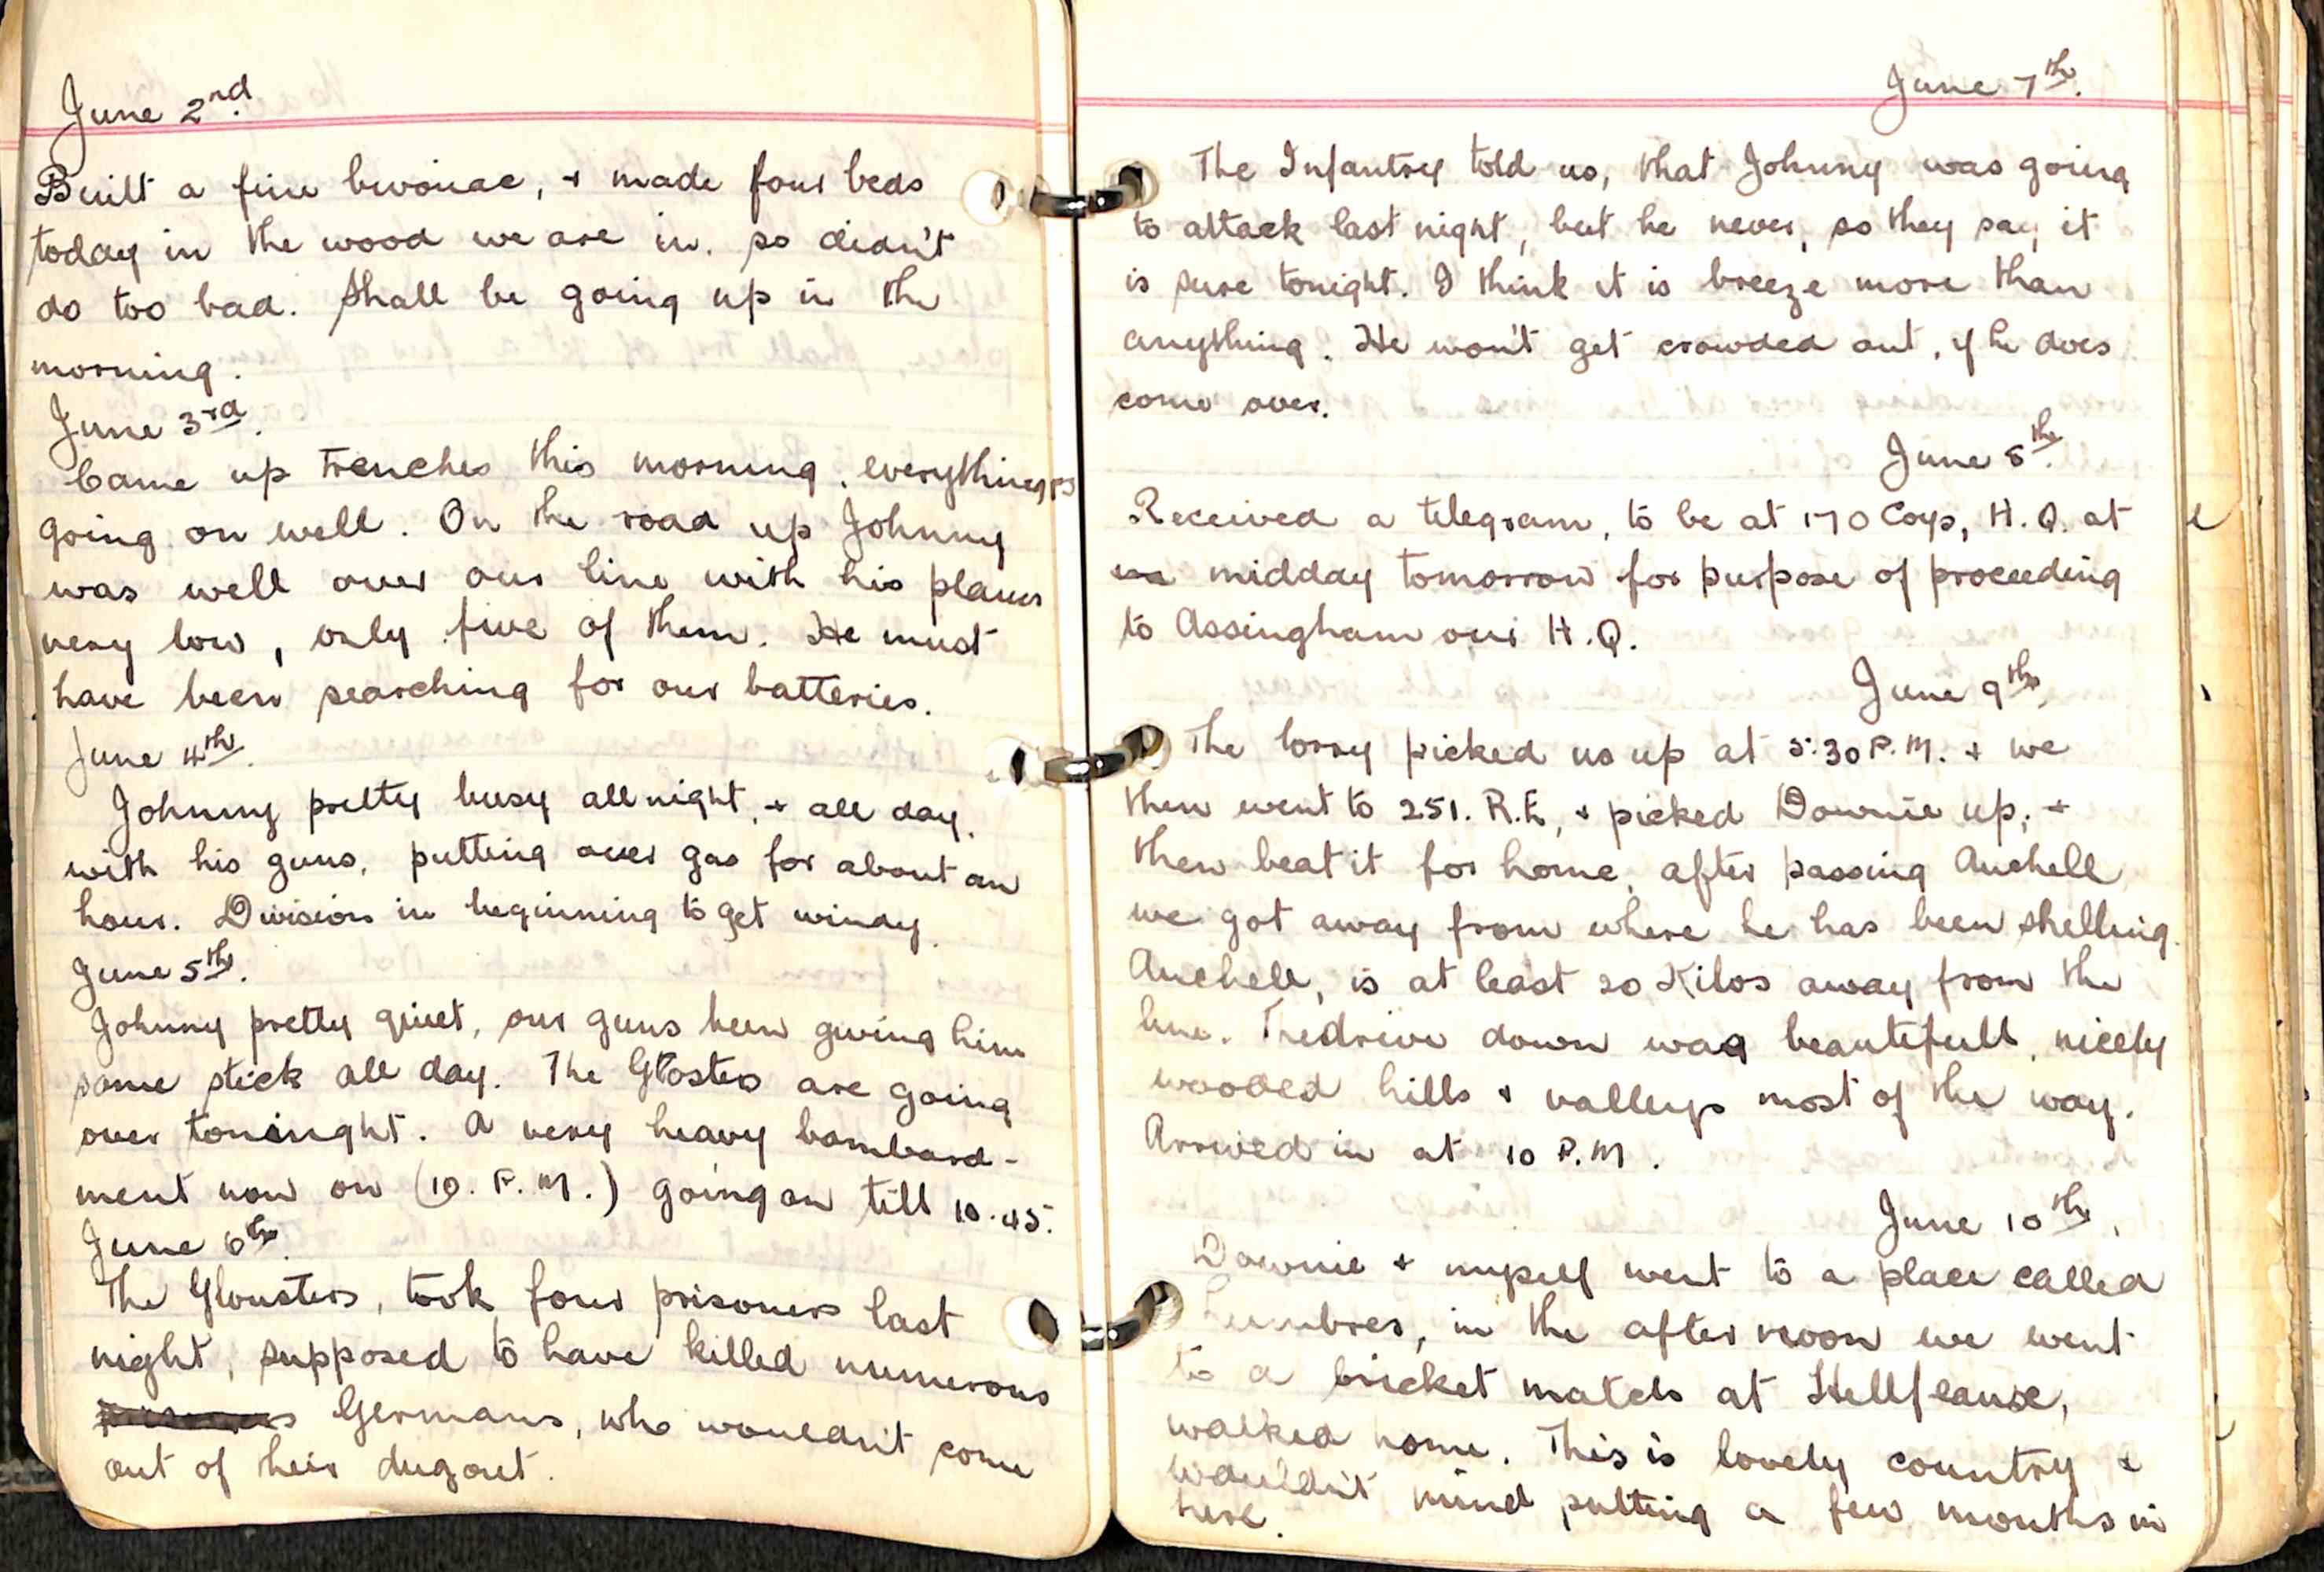 June 2nd.
Built a fine bivouac, + made four beds
today in the wood we are in. so didn't
do too bad. Shall be going up in the
morning.
June 3rd.
Came up trenches this morning. everything
going on well. On the road up Johnny
was well over our line with his planes
very low, only five of them. He must
have been searching for our batteries.
June 4th.
Johnny pretty busy all night, + all day.
with his guns, putting over gas for about an
hour. Division in beginning to get windy.
June 5th.
Johnny pretty quiet, our guns been giving him
some stick all day. The Glosters are going
over toninght. A very heavy bombard-
ment now on (10. P.M.) going on till 10.45.
June 6th.
The Glousters, took four prisoners last
night, supposed to have killed numerous
Germans, who wouldn't come
out of their dugout.
June 7th.
The Infantry told us, that Johnny was going
to attack last night, but he never, so they say it
is sure tonight. I think it is breeze more than
anything. He won't get crowded out, if he does
come over.
June 8th.
Received a telegram, to be at 170 Coys, H.Q. at
midday tomorrow for purpose of proceeding
to Assingham our H.Q.
June 9th.
The lorry picked us up at 5.30 P.M. + we
then went to 251. R.E, + picked Downie up, +
then beat it for home, after passing Auchell
we got away from where he has been shelling.
Auchell, is at least 20 Kilos away from the
line. The drive down was beautifull, nicely
wooded hills + valleys most of the way.
Arrived in at 10 P.M.
June 10th.
Downie + myself went to a place called
Lumbres, in the after noon we went
to a cricket match at Hellfeause,
walked home. This is lovely country +
wouldn't mind putting a few months in
here.